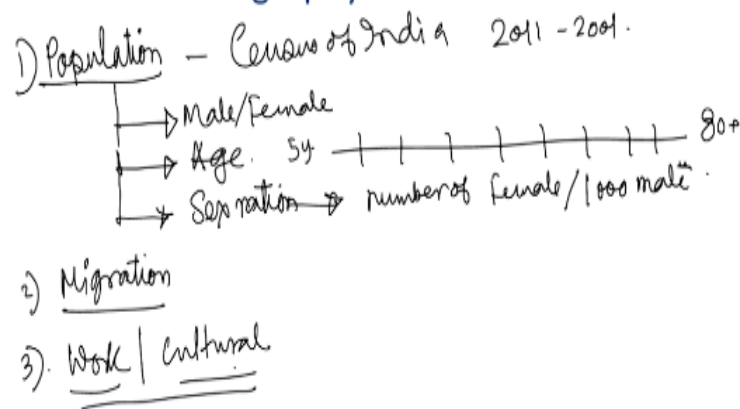 1) Population - Census of India 2011 - 2001.
Male/Female
Age. 5y 80+
Sex ration → number of Female/1000 male.
2) Migration
3). Work | Cultural